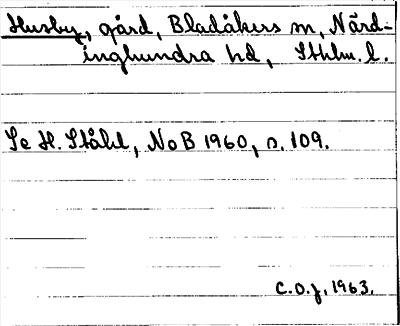 Husby, gård, Bladåkers sn, Närd-
inghundra hd, Sthlm. l.
Se H. Ståhl, NoB 1960, s. 109.
C.O.J. 1963.